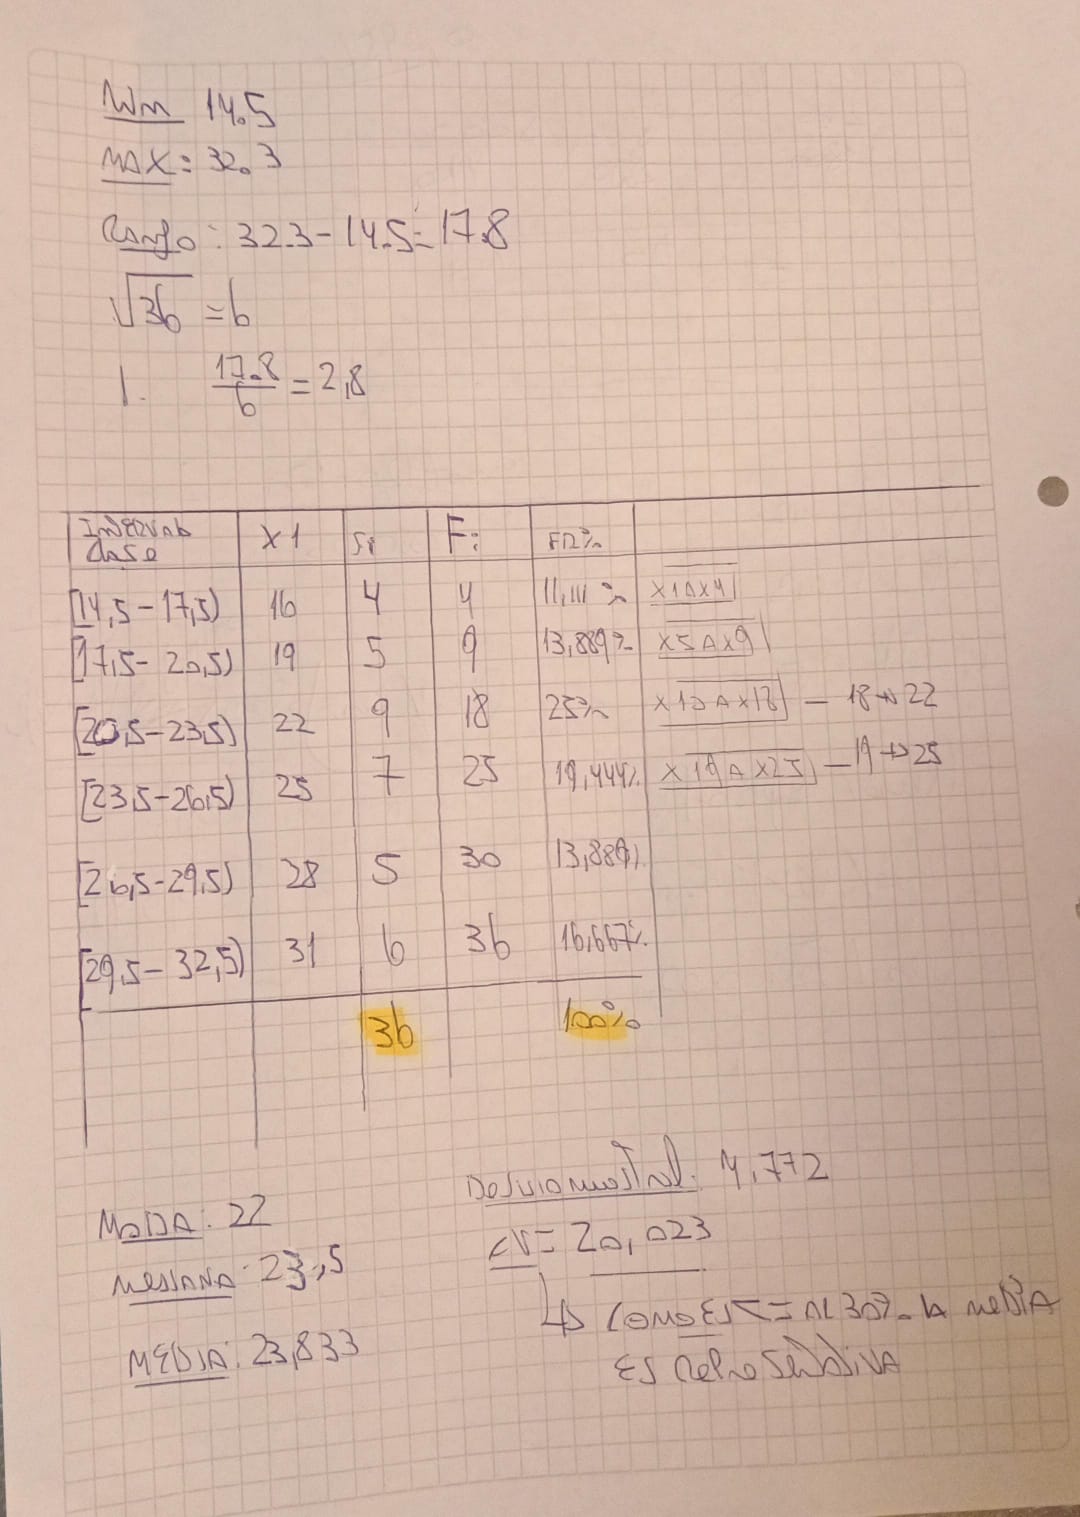 Min 14.5
MAX: 32.3
Rango: 32.3-14.5=17.8
√36 = 6
1. 17.8/6 = 2,8
Intervalo Clase X1 fi Fi FR%
[14,5-17,5) 16 4 4 11,111% X1 A X4
[17,5-20,5) 19 5 9 13,889% X5 A X9
[20,5-23,5) 22 9 18 25% X10 A X18 — 18→22
[23,5-26,5) 25 7 25 19,444% X19 A X25 — 19→25
[26,5-29,5) 28 5 30 13,889%
[29,5-32,5) 31 6 36 16,667%
36 100%
MODA: 22
MEDIANA: 23,5
MEDIA: 23,833
Desvio muestral: 4,772
CV= 20,023
↳ COMO ES <= AL 30% LA MEDIA
ES RepreSentativa